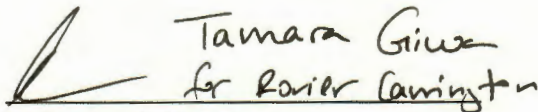 Tamara Giwa
for Rovier Carrington